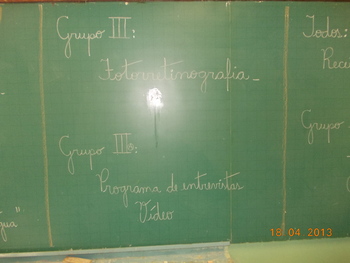 Grupo III:
Fotorretinografia_
Grupo IIIb:
Programa de entrevistas
Vídeo
Todos:
Grupo
gua"
18 04 2013